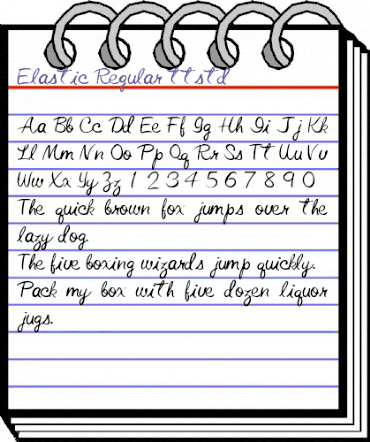 Elastic Regular tt std
Aa Bb Cc Dd Ee Ff Gg Hh Ii Jj Kk
Ll Mm Nn Oo Pp Qq Rr Ss Tt Uu Vv
Ww Xx Yy Zz 1 2 3 4 5 6 7 8 9 0
The quick brown fox jumps over the
lazy dog.
The five boxing wizards jump quickly.
Pack my box with five dozen liquor
jugs.